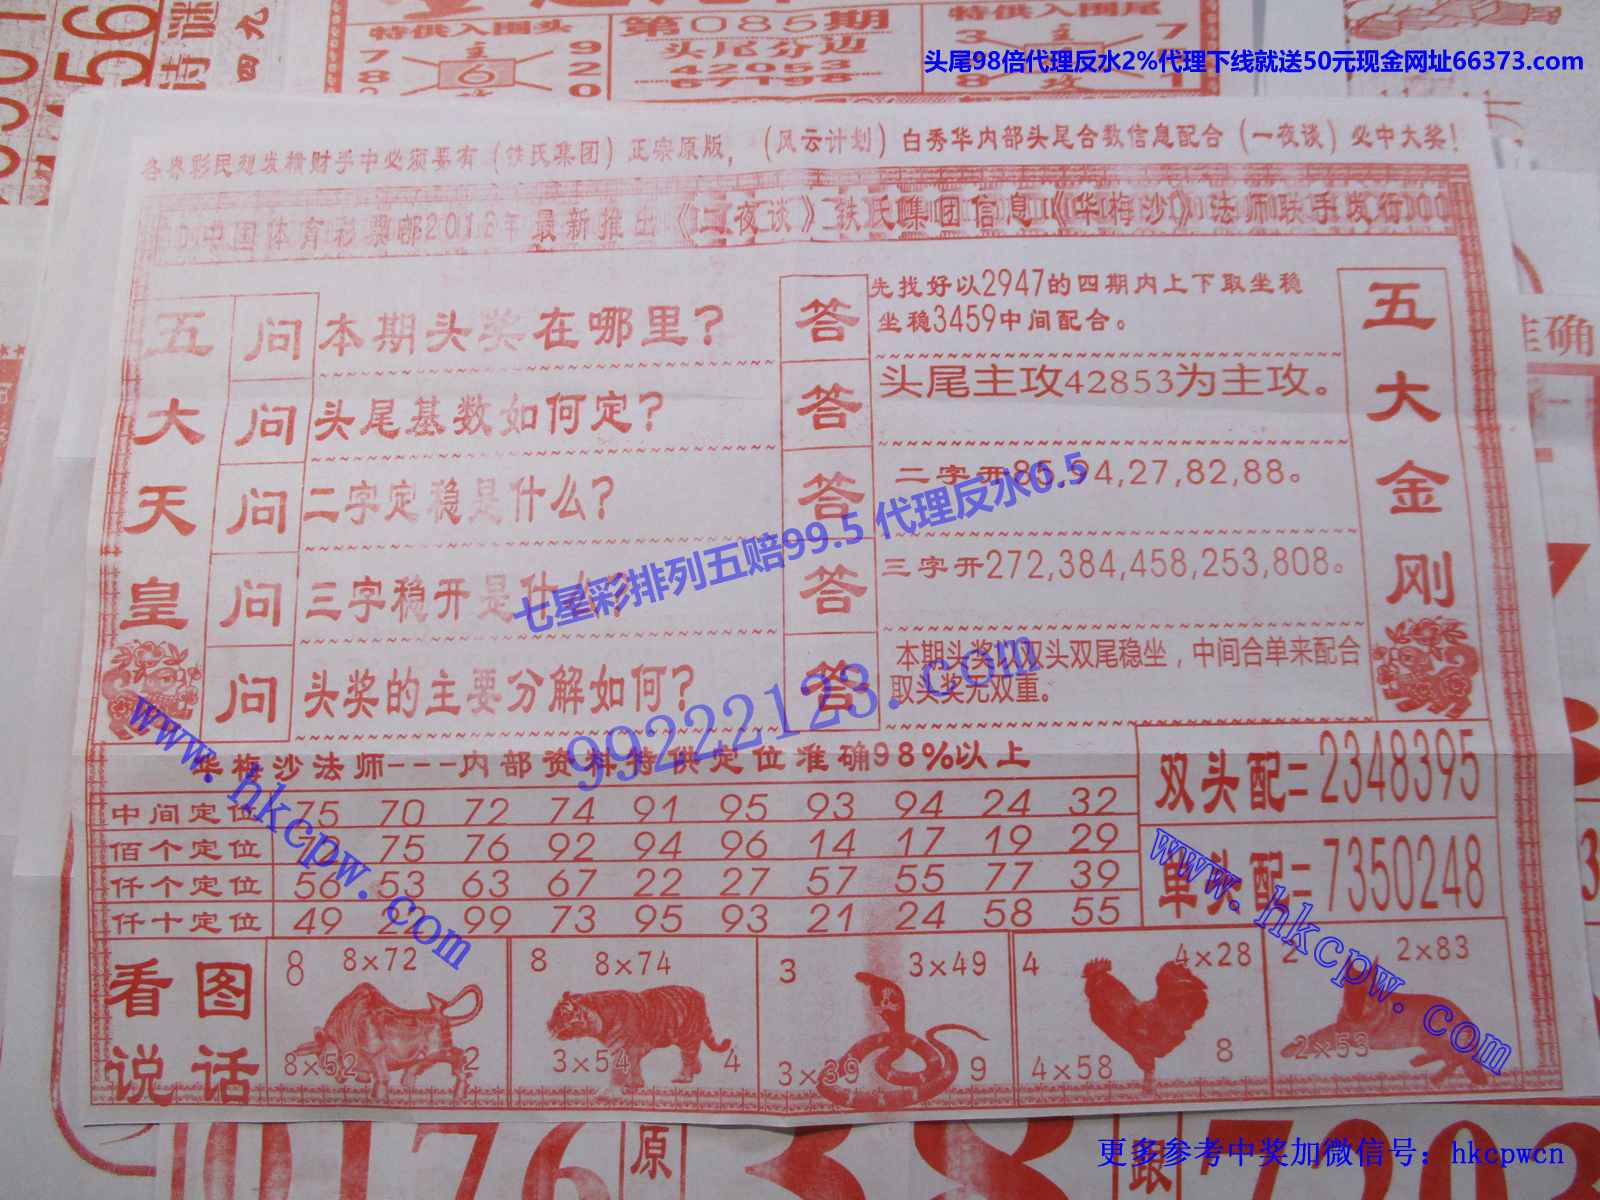 特供入围头
第085期
特供入围尾
头尾分边
42053
67198
7 9
主
6
8 2
2 0
3 7
8 攻 1
头尾98倍代理反水2%代理下线就送50元现金网址66373.com
各界彩民想发横财手中必须要有（铁氏集团）正宗原版，（风云计划）白秀华内部头尾合数信息配合（一夜谈）必中大奖！
中国体育彩票邮2016年最新推出《一夜谈》铁氏集团信息《华梅沙》法师联手发行
五大天皇
问 本期头奖在哪里？
答 先找好以2947的四期内上下取坐稳
坐稳3459中间配合。
问 头尾基数如何定？
答 头尾主攻42853为主攻。
问 二字定稳是什么？
答 二字开85,94,27,82,88。
问 三字稳开是什么？
答 三字开272,384,458,253,808。
问 头奖的主要分解如何？
答 本期头奖以双头双尾稳坐，中间合单来配合
取头奖无双重。
五大金刚
七星彩排列五赔99.5 代理反水0.5
99222123.com
www.hkcpw.com
华梅沙法师---内部资料特供定位准确98%以上
中间定位 75 70 72 74 91 95 93 94 24 32
佰个定位 75 76 92 94 96 14 17 19 29
仟个定位 56 53 63 67 22 27 57 55 77 39
仟十定位 49 22 99 73 95 93 21 24 58 55
双头配=2348395
单头配=7350248
www.hkcpw.com
看图
说话
8 8×72
8×52 2
8 8×74
3×54 4
3 3×49
3×39 9
4 4×28
4×58 8
2 2×83
2×53
准确
0176
原
38
跟
7203
更多参考中奖加微信号：hkcpwcn